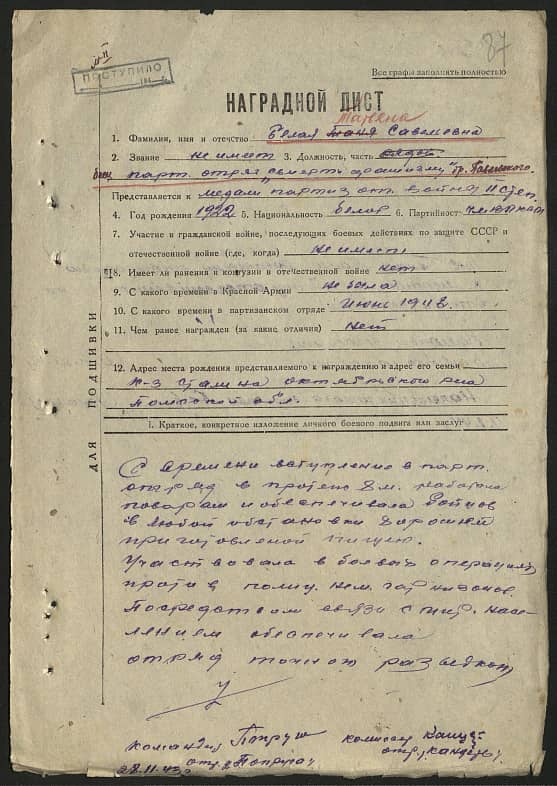 87
ПОСТУПИЛО
Все графы заполнять полностью
НАГРАДНОЙ ЛИСТ
1. Фамилия, имя и отчество Белая Таня Савельевна
2. Звание не имеет 3. Должность, часть
боец парт. отряд "Смерть фашизму" гр.
Представляется к медали партиз. от. война II степ.
4. Год рождения 1922 5. Национальность белор 6. Партийность чл. ВЛКСМ
7. Участие в гражданской войне, последующих боевых действиях по защите СССР и
отечественной войне (где, когда) не имеет
8. Имеет ли ранения и контузии в отечественной войне нет
9. С какого времени в Красной Армии не была
10. С какого времени в партизанском отряде июнь 1942
11. Чем ранее награжден (за какие отличия) нет
12. Адрес места рождения представляемого к награждению и адрес его семьи
к-з Сталина октябрьского р-на
Полесской обл.
ДЛЯ ПОДШИВКИ
I. Краткое, конкретное изложение личного боевого подвига или заслуг
С времени вступление в парт.
отряд в протяж. 8 м. работала
поваром и обеспечивала бойцов
в любой обстановки хорошей
приготовленой пищею.
Участвовала в боевых операциях
против полиц. нем. гарнизонов.
Посредством связи с мир. насе-
лением обеспечивала
отряд точной разведкой
командир комиссар
28.11.43 отр. отр.